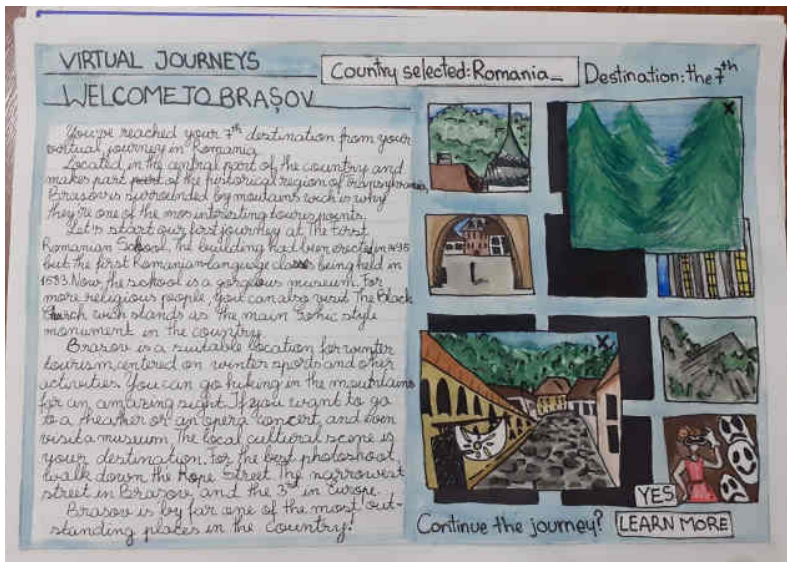 VIRTUAL JOURNEYS
Country selected: Romania_
Destination: the 7th
WELCOME TO BRAȘOV
You've reached your 7th destination from your
virtual journey in Romania.
Located in the central part of the country and
makes part part of the historical region of Transylvania,
Brasov is surrounded by moutains wich is why
they're one of the mos interesting touris points.
Let's start our first journey at The First
Romanian School, the building had been erected in 1495
but the first Romanian-language class being held in
1583. Now the school is a gorgious museum. For
more religious people, you can also visit The Black
Church wich stands as the main Gohic style
monument in the country.
Brasov is a suitable location for winter
tourism centered on winter sports and other
activities. You can go hiking in the mountains
for an amazing sight. If you want to go
to a theather or an opera concert, and even
visit a museum, the local cultural scene is
your destination. For the best photoshoot,
walk down the Rope Street, the narrowest
street in Brasov, and the 3rd in Europe.
Brasov is by far one of the most out-
standing places in the country!
X
X
YES
Continue the journey?
LEARN MORE